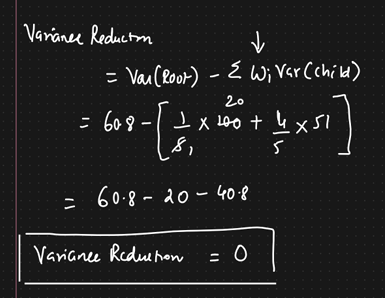 Variance Reduction
= Var(Root) - Σ Wi Var(child)
= 60.8 - [1/5 × 100 20 + 4/5 × 51]
= 60.8 - 20 - 40.8
Variance Reduction = 0